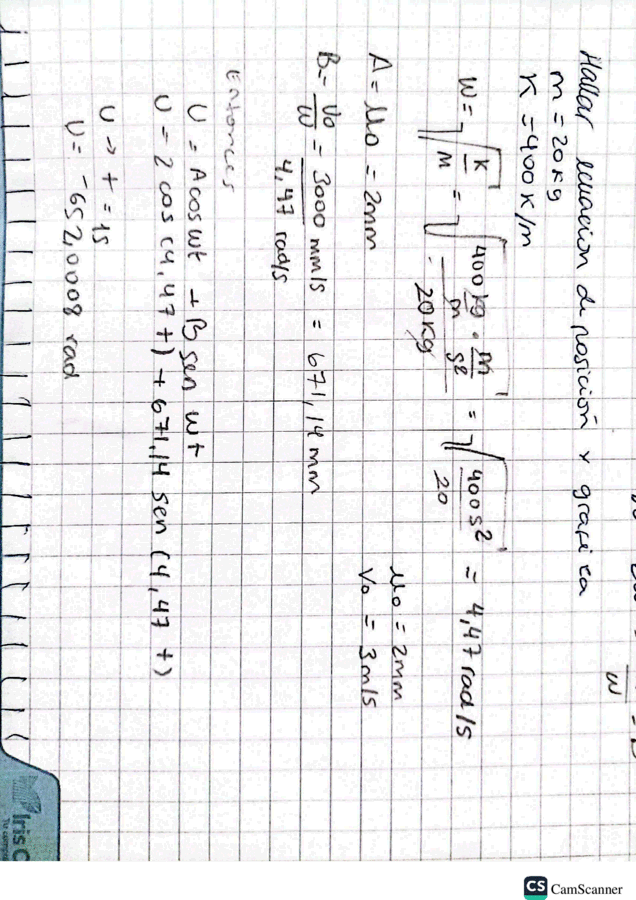 Hallar ecuacion de posición y grafica
m = 20 kg
K = 400 K/m
W = √(K/M) = √(400 kg/m · m/s² / 20 kg) = √(400 s² / 20) = 4,47 rad/s
μo = 2mm
Vo = 3 m/s
A = μo = 2mm
B = Vo/W = 3000 mm/s / 4,47 rad/s = 671,14 mm
Entonces
U = A cos wt + B sen wt
U = 2 cos (4,47 t) + 671,14 sen (4,47 t)
U → t = 1s
U = -652,0008 rad
W
Iris
CS CamScanner